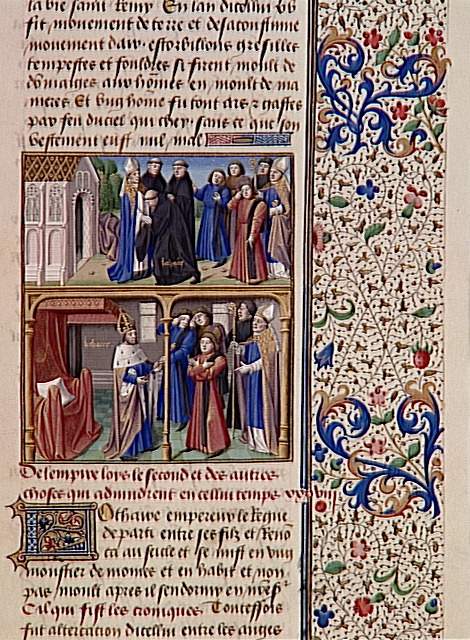 la vie saint Remy En lan dicellui v6
fit monuement de terre et desaconstume
monuement dair estorbillons gresilles
tempestes et fouldres si firent moult de
dommaiges aux hommes en moult de ma
nieres Et ung home fu tout ars z gastes
par feu du ciel qui chey sans ce que son
vestement eust nul mal
lothaire
De lempire loys le second et des autres
choses qui advindrent en cellui temps xxxviij
Lothaire empereur le Regne
departi entre ses filz et Reno
ca au siecle et se mist en ung
monstier de moines et en habit et non
pas moult apres il sendormy en nres
Cil qui fist les croniques Touteffois
fut altercation dicellui entre les anges